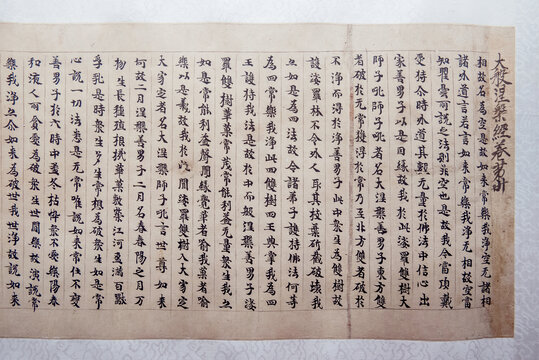 大般涅槃經卷第卅
相故名为空是故如来常樂我淨空无諸相
諸外道言若言如来常樂我淨无相故空當
知瞿曇所說之法則非空也是故我今當頂戴
受持余時外道其數无量於佛法中信心出
家善男子以是因緣故我於此娑羅雙樹大
師子吼師子吼者名大涅槃善男子東方雙
者破於无常獲得於常乃至北方雙者破於
不淨而得於淨善男子此中衆生為雙樹故
護娑羅林不令外人取其枝葉斫截破壞我
亦如是為四法故令諸弟子護持佛法何等
為四常樂我淨此四雙樹四王典掌我為四
王護持我法是故於中而般涅槃善男子娑
羅雙樹華菓常茂常能利益无量衆生我亦
如是常能利益聲聞緣覺華者喻我菓者喻
樂以是義故我於此間娑羅雙樹入大寂定
大寂定者名大涅槃師子吼言世尊如来
何故二月涅槃善男子二月名春春陽之月万
物生長種殖根栽華菓敷榮江河盈滿百獸
孚乳是時衆生多生常想為破衆生如是常
心說一切法悉是无常唯說如来常住不變
善男子於六時中孟冬枯悴衆不愛樂陽春
和液人所貪愛為破衆生世間樂故演說常
樂我淨亦尒如来為破世我世淨故說如来